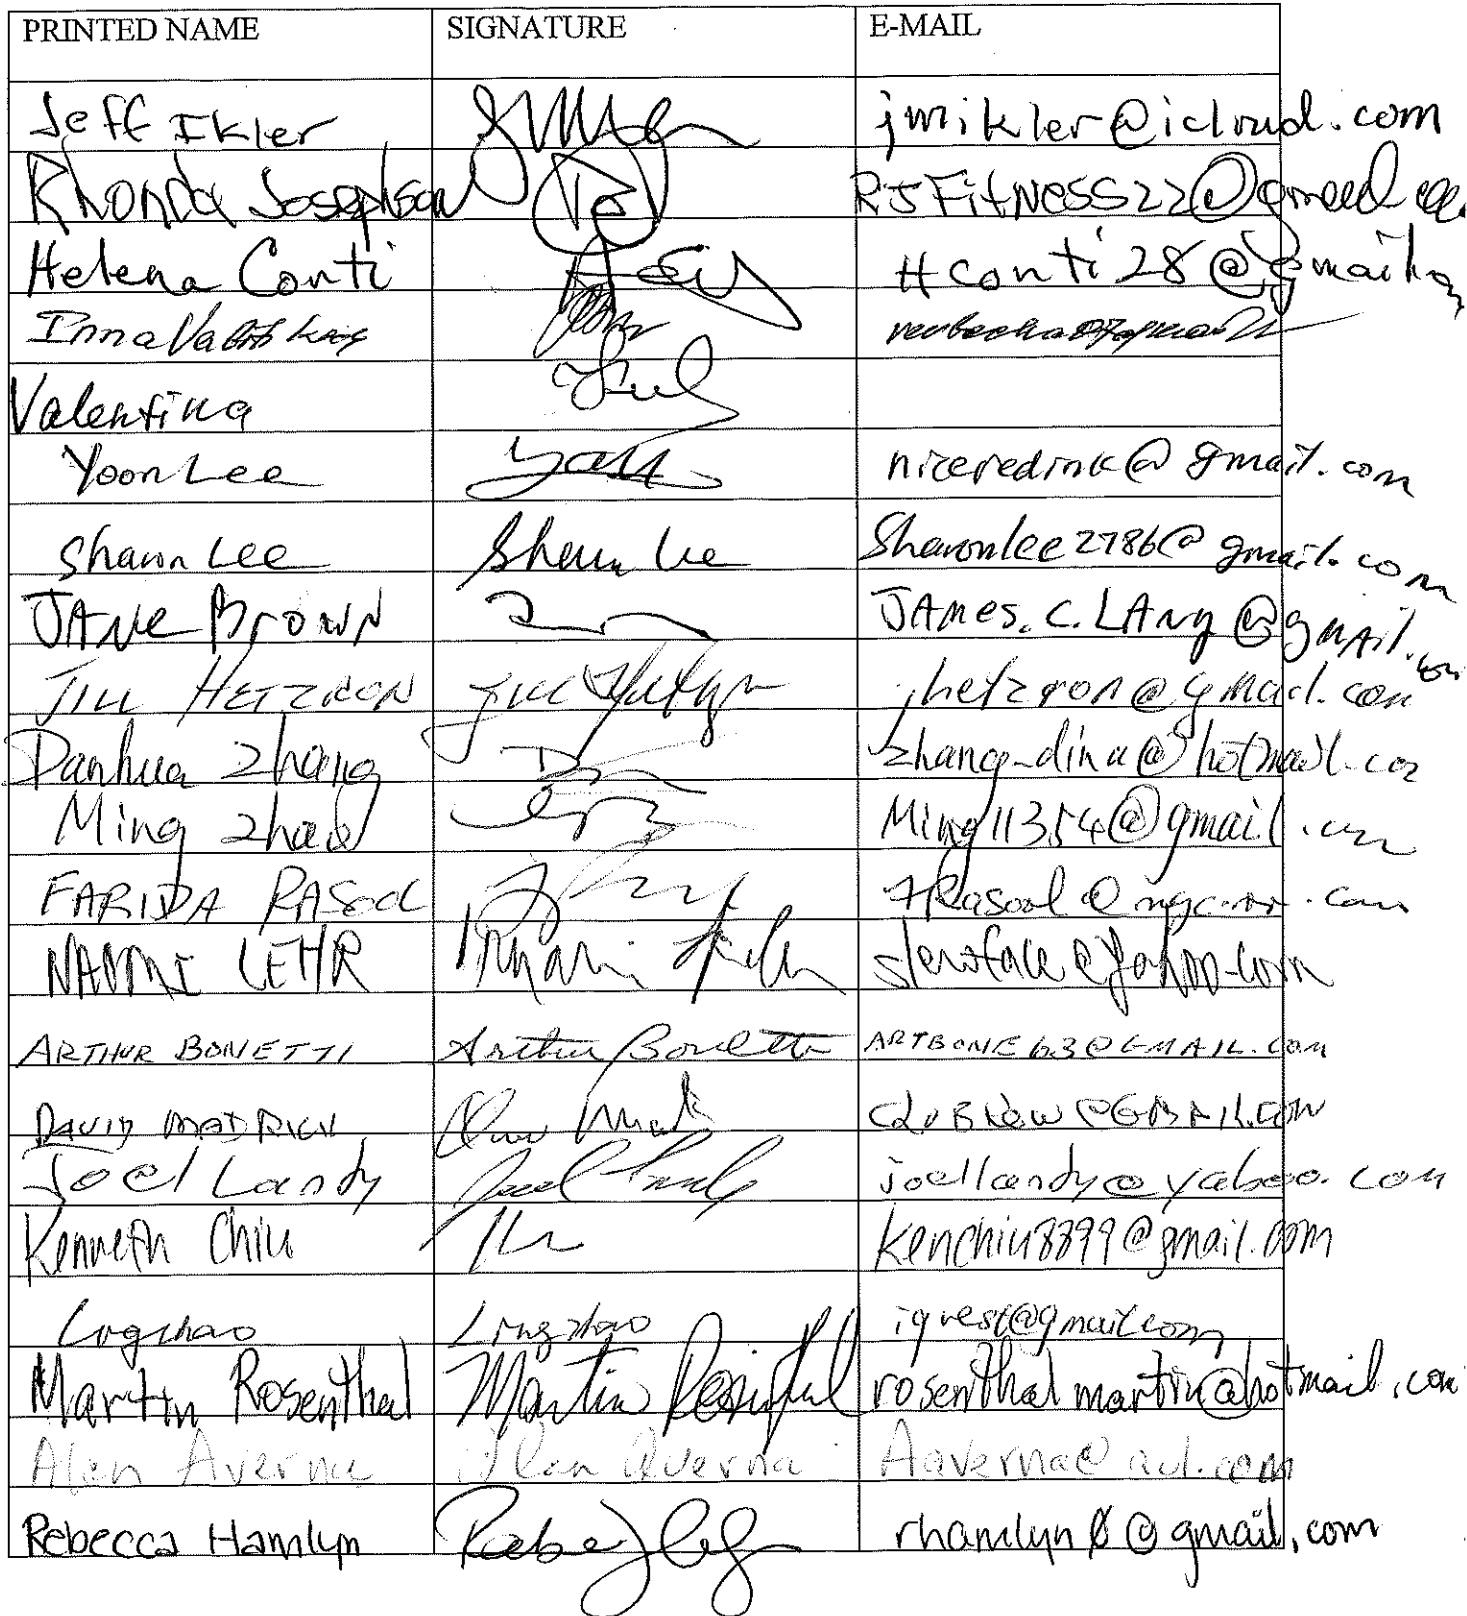 PRINTED NAME SIGNATURE E-MAIL
Jeff Ikler jwikler@icloud.com
Rhonda Josephson RJFitNESS22@gmail.co
Helena Conti Hconti28@gmail.com
Inna
Valentina
Yoon Lee niceredink@gmail.com
Sharon Lee Sharon Lee Sharonlee2786@gmail.com
JANE BROWN JAMES.C.LANG@gmail.com
JILL HETZRON Jill Hetzron jhetzron@gmail.com
Danhua Zhang zhang_dina@hotmail.com
Ming Zhao Ming11354@gmail.com
FARIDA RASOOL
NAOMI LEHR Naomi Lehr
ARTHUR BONETTI Arthur Bonetti ARTBONE63@GMAIL.COM
DAVID
Joel Landy Joel Landy joellandy@yahoo.com
Kenneth Chiu kenchiu8899@gmail.com
Lingzhao Lingzhao iqvest@gmail.com
Martin Rosenthal Martin Rosenthal rosenthalmartin@hotmail.com
Alan Averna Alan Averna Aaverna@aol.com
Rebecca Hamlyn rhamlyn0@gmail.com